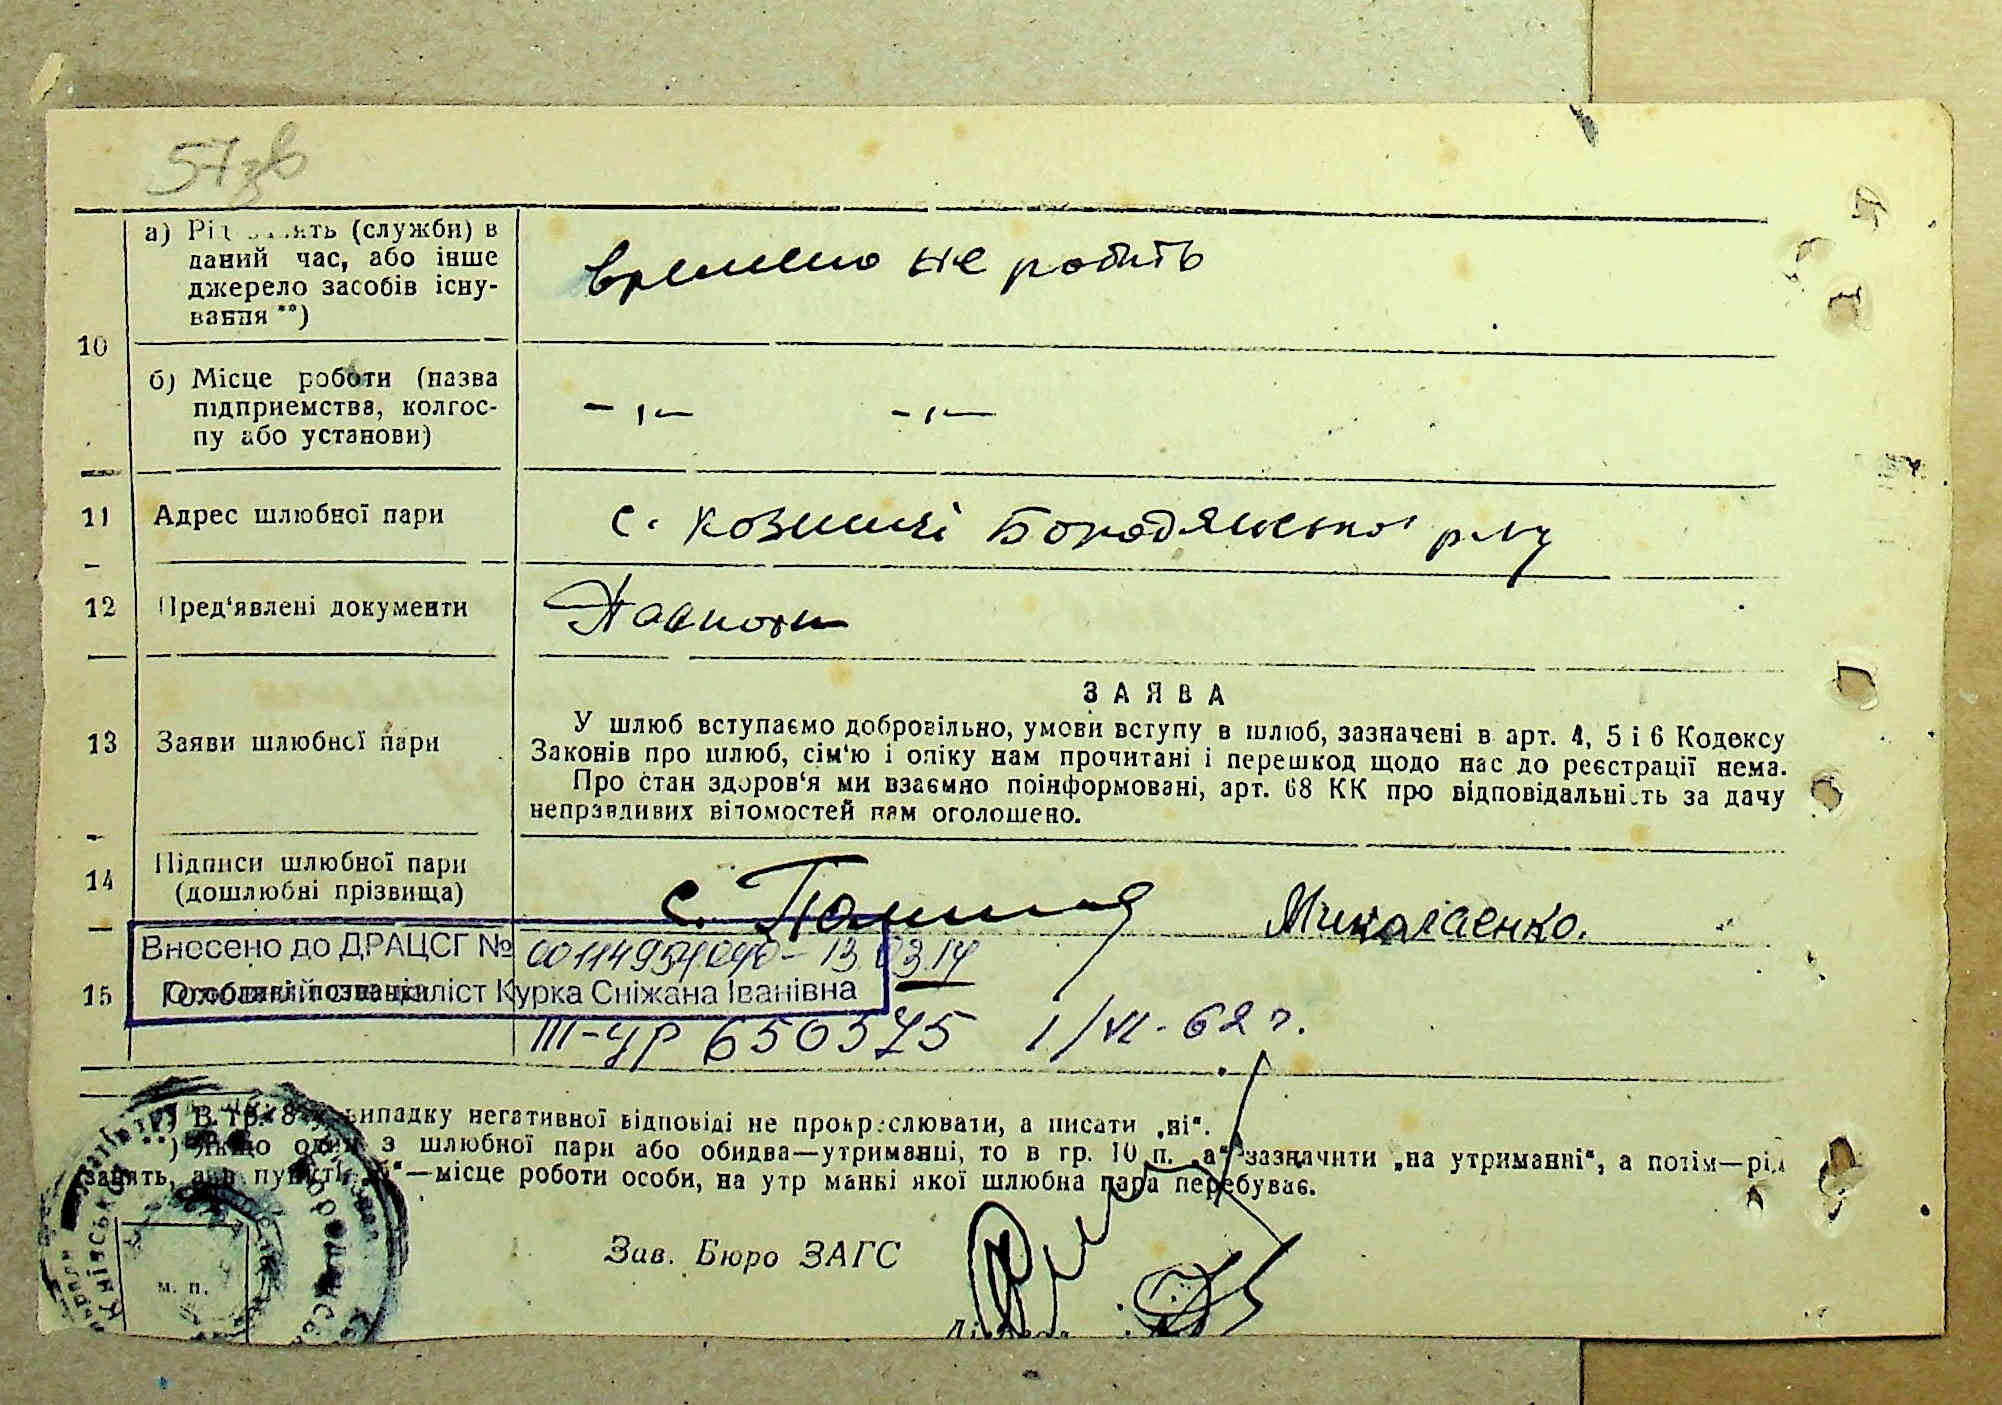 57зв
а) Рід занять (служби) в
даний час, або інше
джерело засобів існу-
вання **)
временно не робить
10
б) Місце роботи (назва
підприємства, колгос-
пу або установи)
– „ – – „ –
11 Адрес шлюбної пари
с. Козинчі Бородянського р-ну
12 Пред'явлені документи
Паспорти
13 Заяви шлюбної пари
ЗАЯВА
У шлюб вступаємо добровільно, умови вступу в шлюб, зазначені в арт. 4, 5 і 6 Кодексу
Законів про шлюб, сім'ю і опіку нам прочитані і перешкод щодо нас до реєстрації нема.
Про стан здоров'я ми взаємно поінформовані, арт. 68 КК про відповідальність за дачу
неправдивих відомостей нам оголошено.
14 Підписи шлюбної пари
(дошлюбні прізвища)
с. Миколаенко.
Внесено до ДРАЦСГ № 00114954090 – 13.03.14
Головний спеціаліст Курка Сніжана Іванівна
15 Особливі познаки
III-ЧР 650575 1/VI-62 г.
*) В гр. 8 у випадку негативної відповіді не прокреслювати, а писати „ні“.
**) Якщо один з шлюбної пари або обидва—утриманці, то в гр. 10 п. „а“ зазначити „на утриманні“, а потім—рід
занять, а в пункті „б“—місце роботи особи, на утриманні якої шлюбна пара перебуває.
м. п.
Зав. Бюро ЗАГС